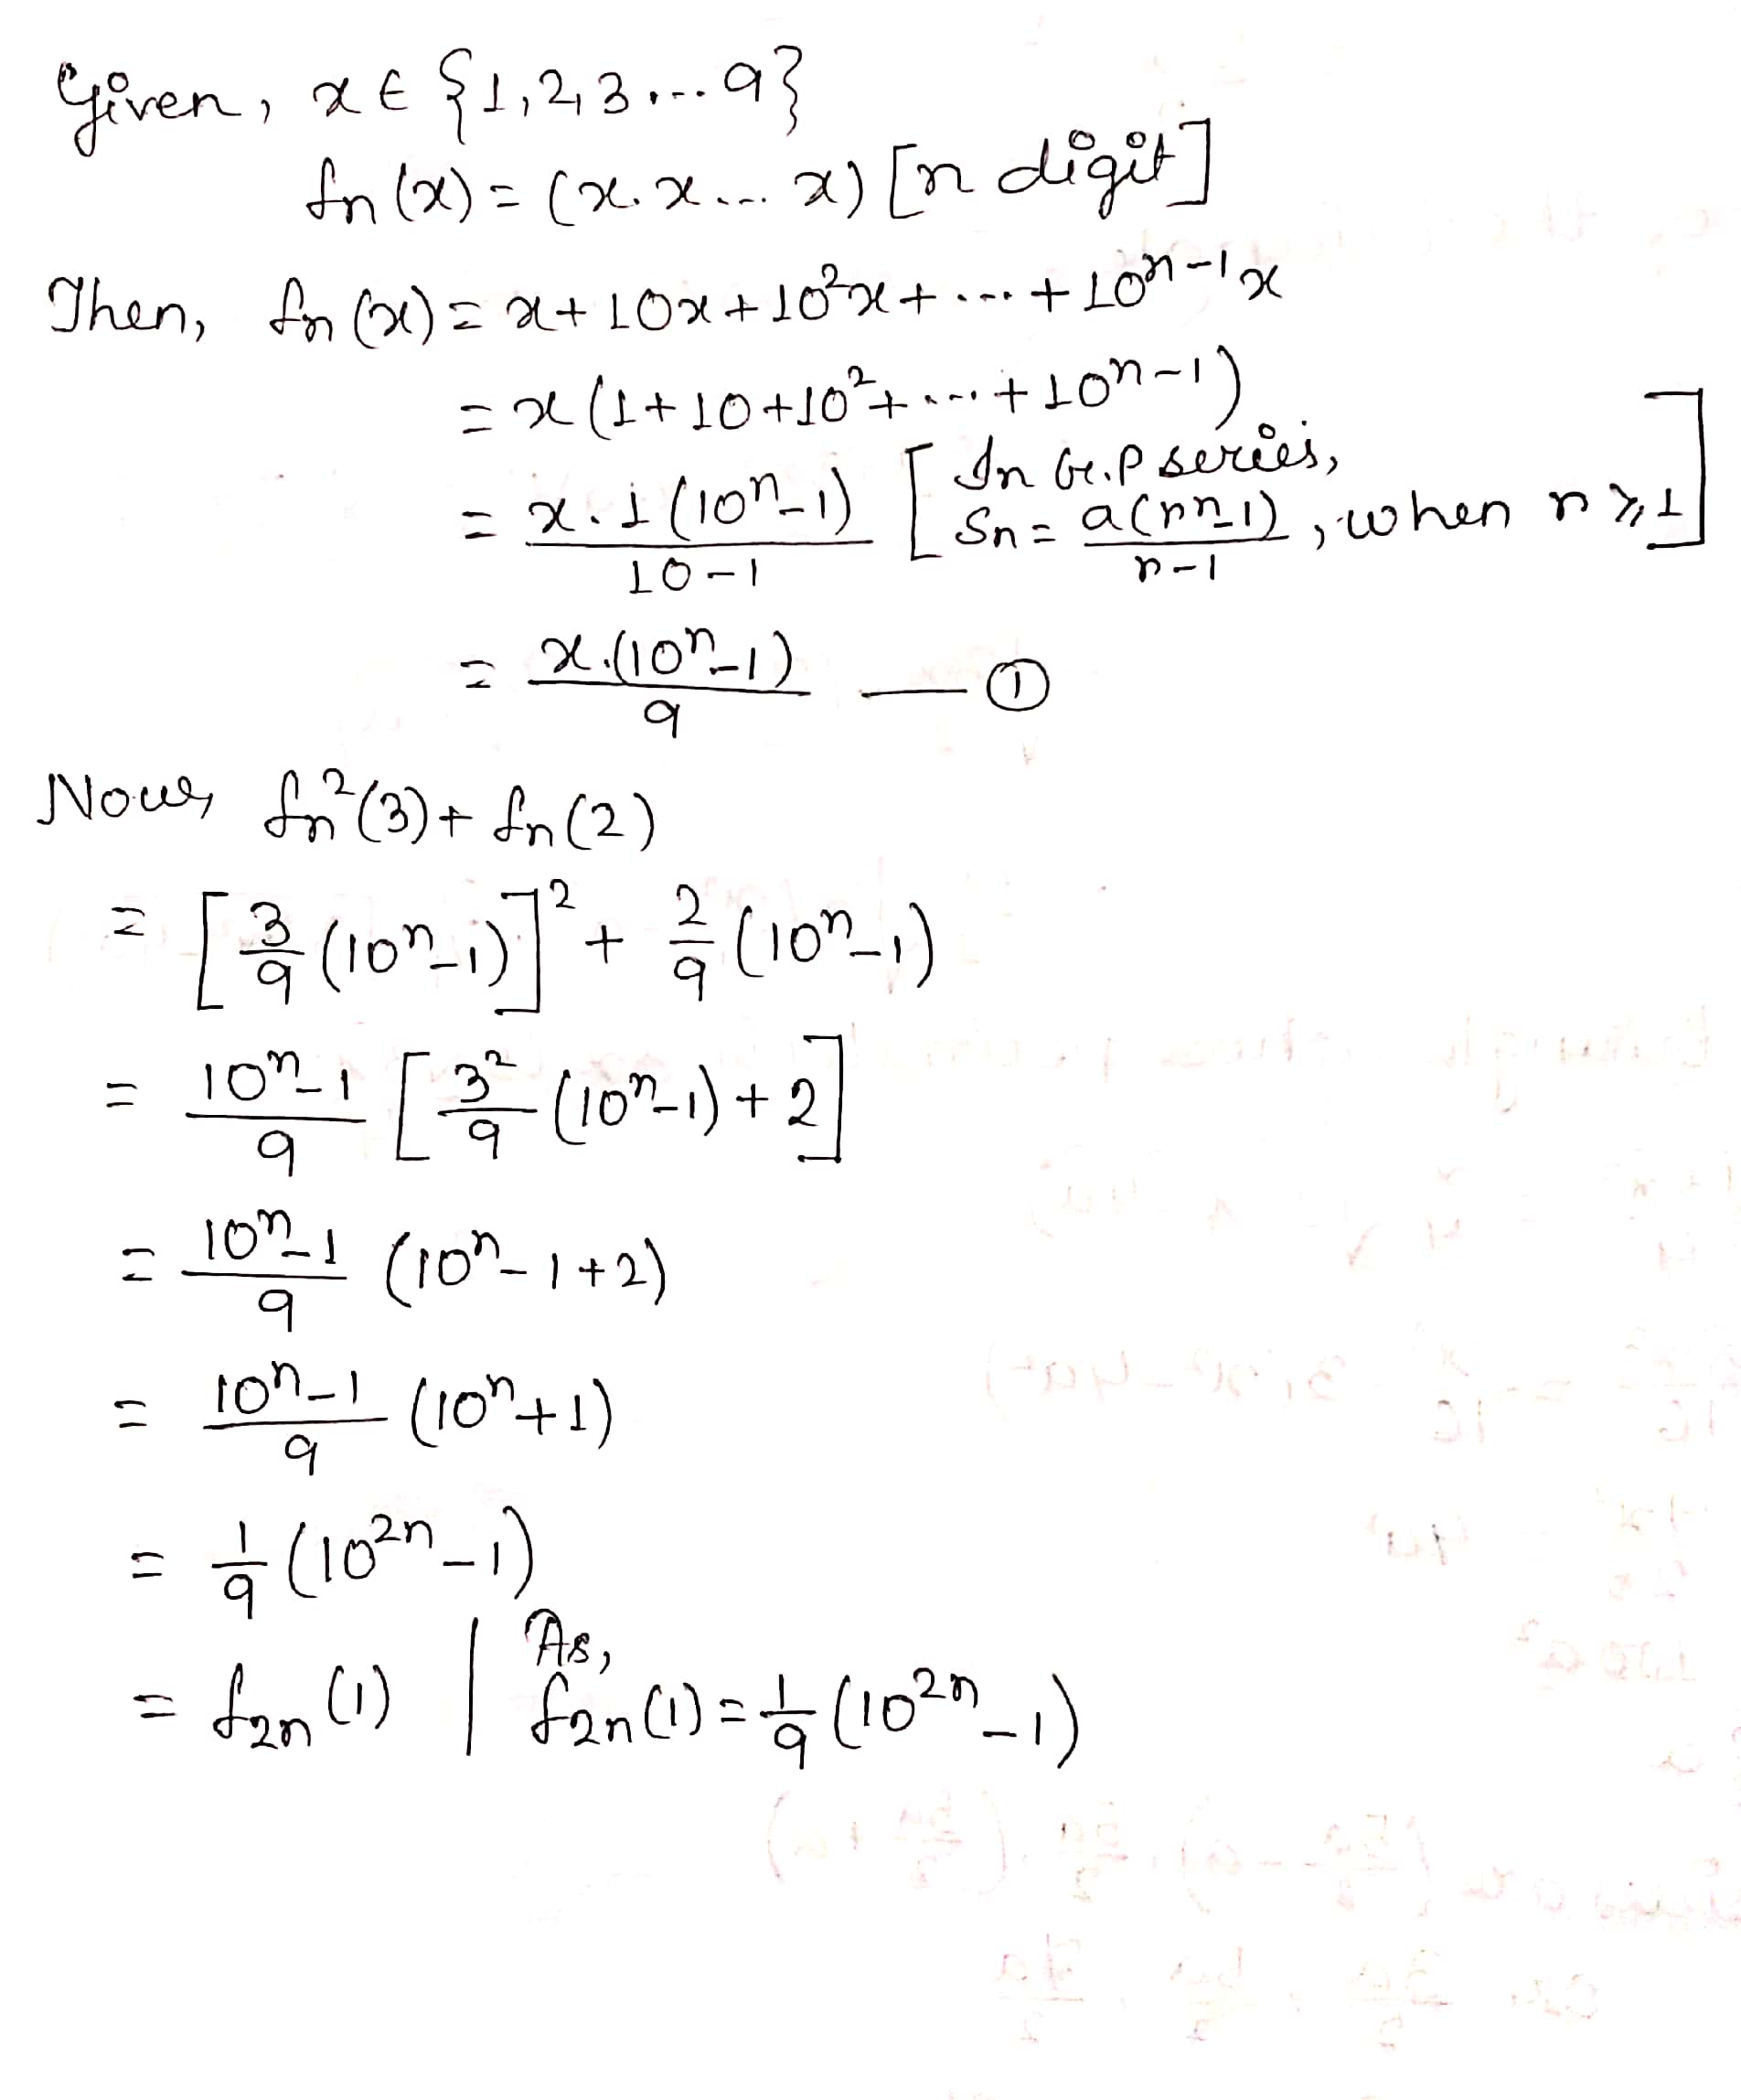 Given, x ∈ {1,2,3....9}
fn(x) = (x.x.... x) [n digit]
Then, fn(x) = x + 10x + 10²x + .... + 10ⁿ⁻¹x
= x(1+10+10²+....+10ⁿ⁻¹)
= x.1(10ⁿ-1)/10-1 [In G.P series, Sn = a(rⁿ-1)/r-1, when r ≥ 1]
= x.(10ⁿ-1)/9 — ①
Now, fn²(3) + fn(2)
= [3/9 (10ⁿ-1)]² + 2/9 (10ⁿ-1)
= 10ⁿ-1/9 [3²/9 (10ⁿ-1) + 2]
= 10ⁿ-1/9 (10ⁿ-1+2)
= 10ⁿ-1/9 (10ⁿ+1)
= 1/9 (10²ⁿ-1)
= f2n(1) | As, f2n(1) = 1/9 (10²ⁿ-1)